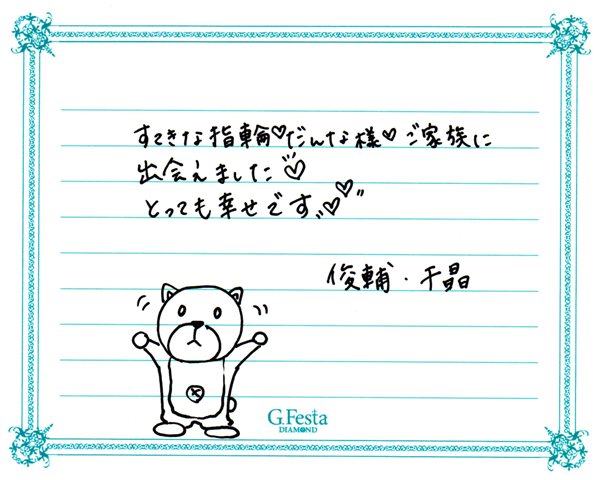 すてきな指輪♡だんな様♡ご家族に
出会えました♡
とっても幸せです♡♡
俊輔・千晶
G.Festa
DIAMOND